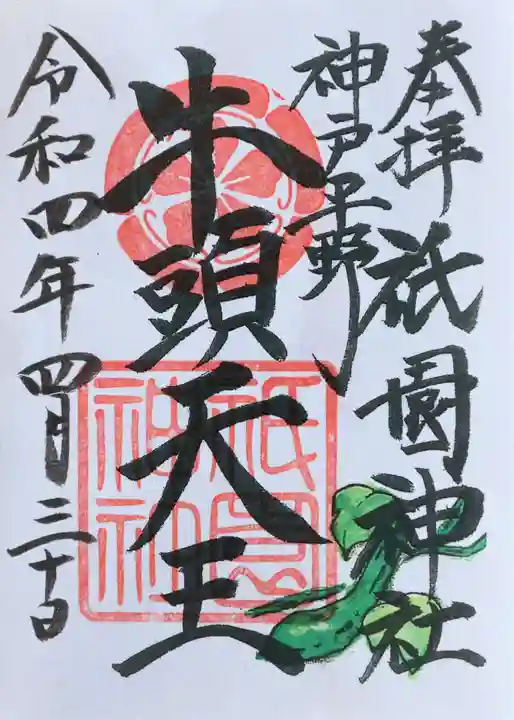 奉拝 祇園神社
神戸平野
牛頭天王
令和四年四月三十日
祇園
神社